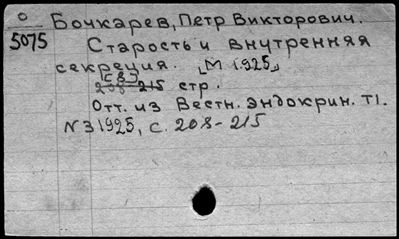 О Бочкарев, Петр Викторович.
5075 Старость и внутренняя
секреция. [М 1925]
[С8]
208-215 стр.
Отт. из Вестн. эндокрин. Т1.
N3 1925, с. 208-215